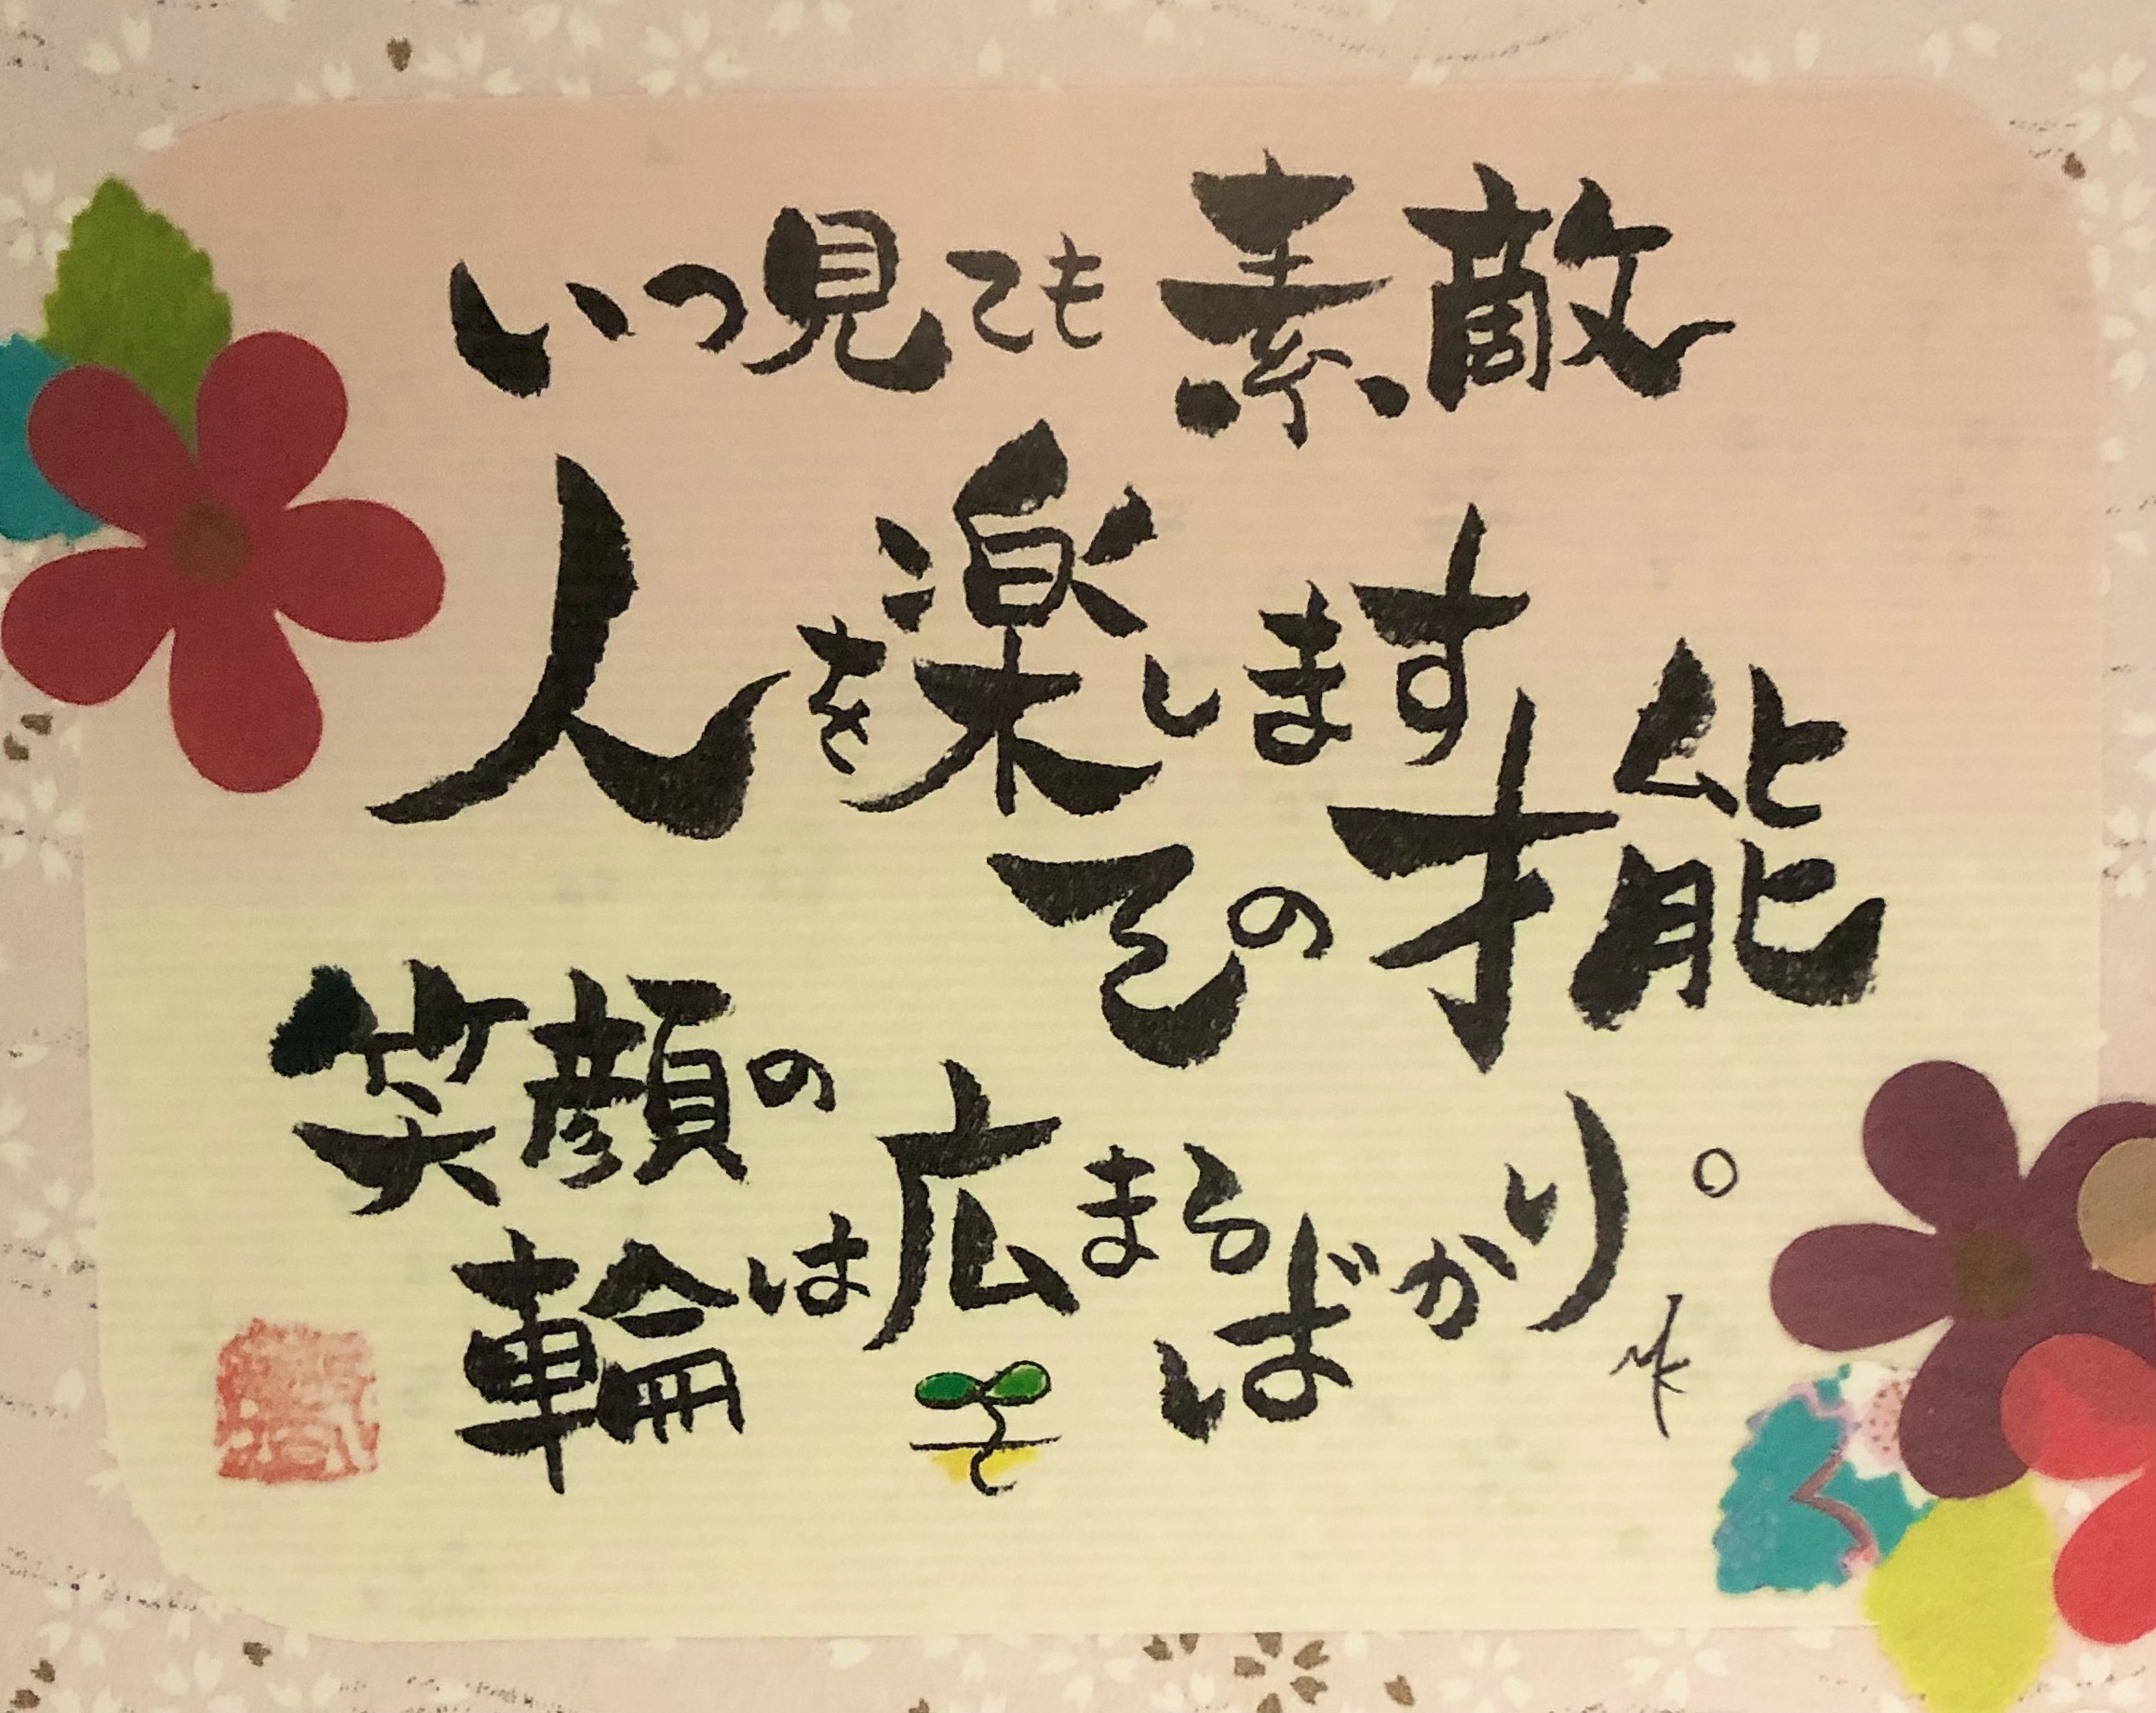 いつ見ても素敵
人を楽します
その才能
笑顔の
輪は広まるばかり。